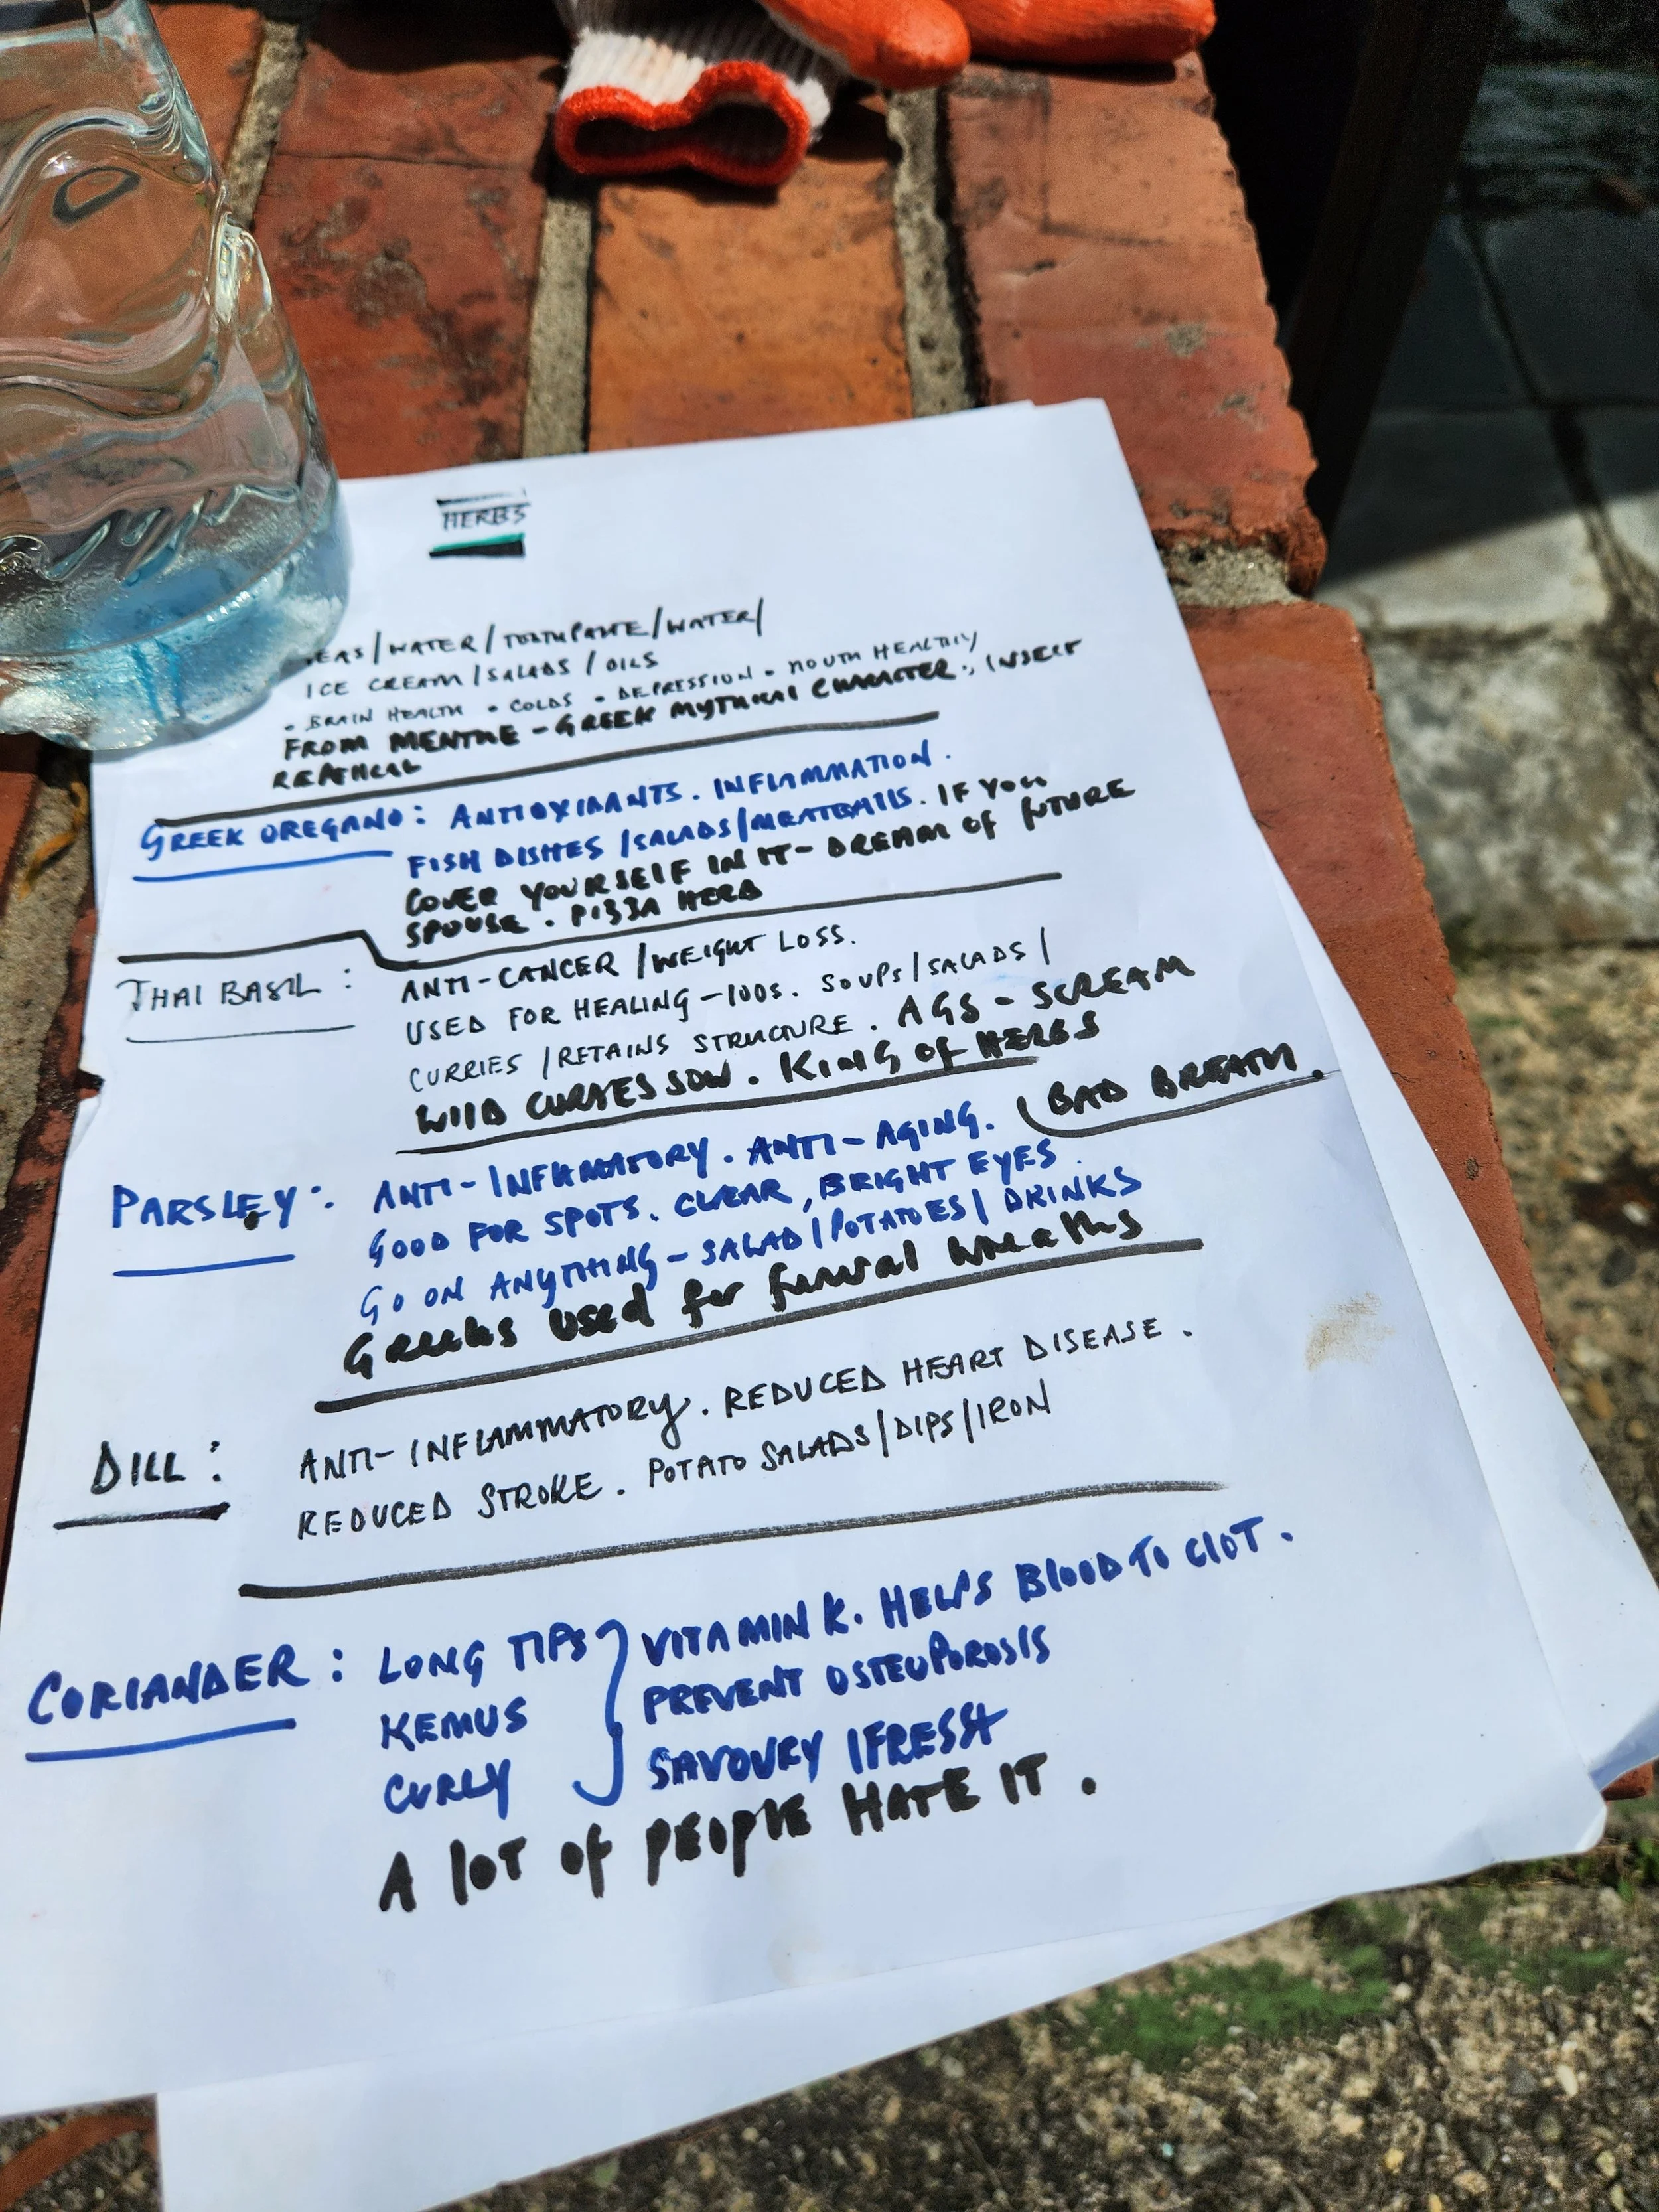 HERBS
EAS/WATER/TOOTHPASTE/WATER/
ICE CREAM/SALADS/OILS
- BRAIN HEALTH • COLDS • DEPRESSION • MOUTH HEALTHIY
FROM MENTHE - GREEK MYTHICAL CHARACTER. INSECT
GREEK OREGANO: ANTIOXIDANTS. INFLAMMATION.
FISH DISHES/SALADS/MEATBALLS. IF YOU
COVER YOURSELF IN IT - DREAM OF FUTURE
SPOUSE. PIZZA HERB
THAI BASIL: ANTI-CANCER/WEIGHT LOSS.
USED FOR HEALING - 100s. SOUPS/SALADS/
CURRIES/RETAINS STRUCTURE. AGS - SCREAM
WILD CURSES SOW. KING OF HERBS
PARSLEY: ANTI-INFLAMATORY. ANTI-AGING. (BAD BREATH.
GOOD FOR SPOTS. CLEAR, BRIGHT EYES.
GO ON ANYTHING - SALAD/POTATOES/DRINKS
Greeks used for funeral wreaths
DILL: ANTI-INFLAMMATORY. REDUCED HEART DISEASE.
REDUCED STROKE. POTATO SALADS/DIPS/IRON
CORIANDER: LONG TIPS } VITAMIN K. HELPS BLOOD TO CLOT.
KEMUS PREVENT OSTEUPOROSIS
CURLY SAVOURY/FRESH
A LOT OF PEOPLE HATE IT.